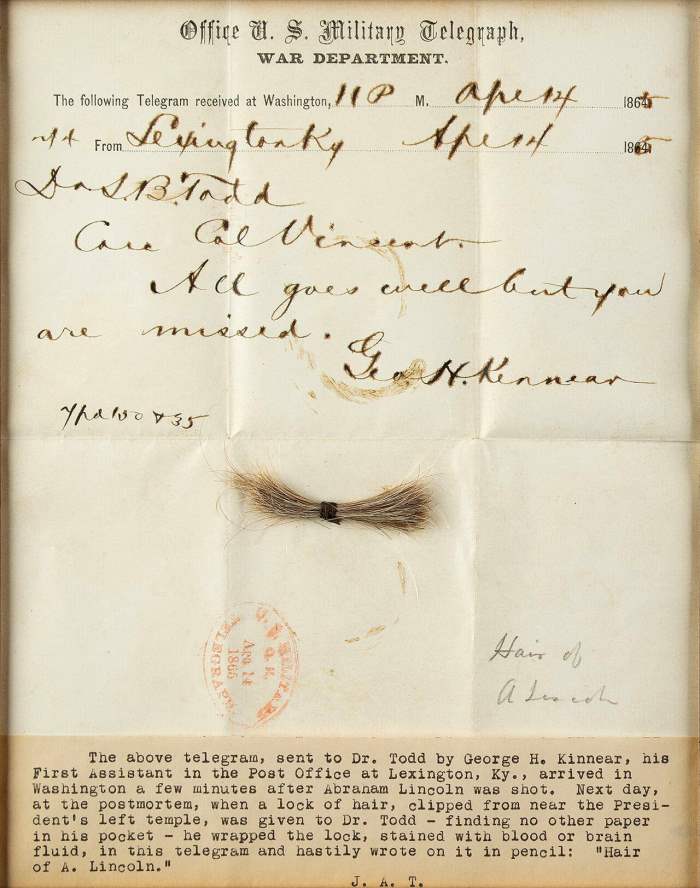 Office U. S. Military Telegraph,
WAR DEPARTMENT.
The following Telegram received at Washington, 11 P M. Apr 14 1865
From Lexington Ky Apr 14 1865
Dr L. B. Todd
Care Col Vincent.
All goes well but you
are missed.
Geo. H. Kennear
Hair of
A Lincoln
U. S. MILITARY
TELEGRAPH
The above telegram, sent to Dr. Todd by George H. Kinnear, his
First Assistant in the Post Office at Lexington, Ky., arrived in
Washington a few minutes after Abraham Lincoln was shot. Next day,
at the postmortem, when a lock of hair, clipped from near the Presi-
dent's left temple, was given to Dr. Todd - finding no other paper
in his pocket - he wrapped the lock, stained with blood or brain
fluid, in this telegram and hastily wrote on it in pencil: "Hair
of A. Lincoln."
J. A. T.